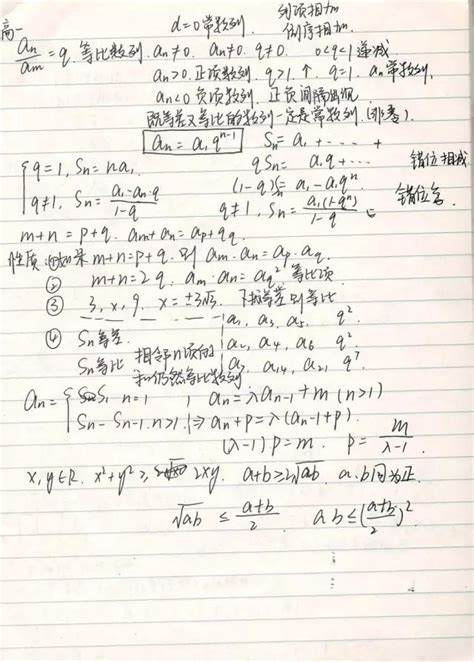 高一
d=0 常数列
列项相加
倒序相加
an/am = q. 等比数列. an≠0. an≠0. q≠0. 0<q<1 递减
an>0. 正项数列. q>1. ↑ q=1. an 常数列.
an<0 负项数列. 正负间隔出现
既等差又等比的数列一定是常数列.(非零).
an=a1q^(n-1) Sn=a1+····+
q=1, Sn=na1. qSn= a1q+··· 错位相减
q≠1, Sn=(a1-an·q)/(1-q) (1-q)Sn=a1-a1q^n.
q≠1, Sn=a1(1-q^n)/(1-q)
m+n=p+q. am+an=ap+qq.
性质: ①如果m+n=p+q. 则 am·an=ap·aq.
② m+n=2q. am·an=aq^2 等比项.
③ 3, x, 9. x=±3√3. 下标等差则等比
④ Sn等差. a1, a3, a5. q^2
Sn等比 相邻n项的 a2, a4, a6 q^2
和仍然等比数列 a7. a14, a21 q^7
an={S1 n=1 an=λan-1+m (n>1)
Sn-Sn-1. n>1. ⇒ an+p=λ(an-1+p).
(λ-1)p=m. p=m/(λ-1).
x, y∈R. x^2+y^2≥ 2xy. a+b≥2√ab. a.b同为正.
√ab ≤ (a+b)/2 ab≤((a+b)/2)^2